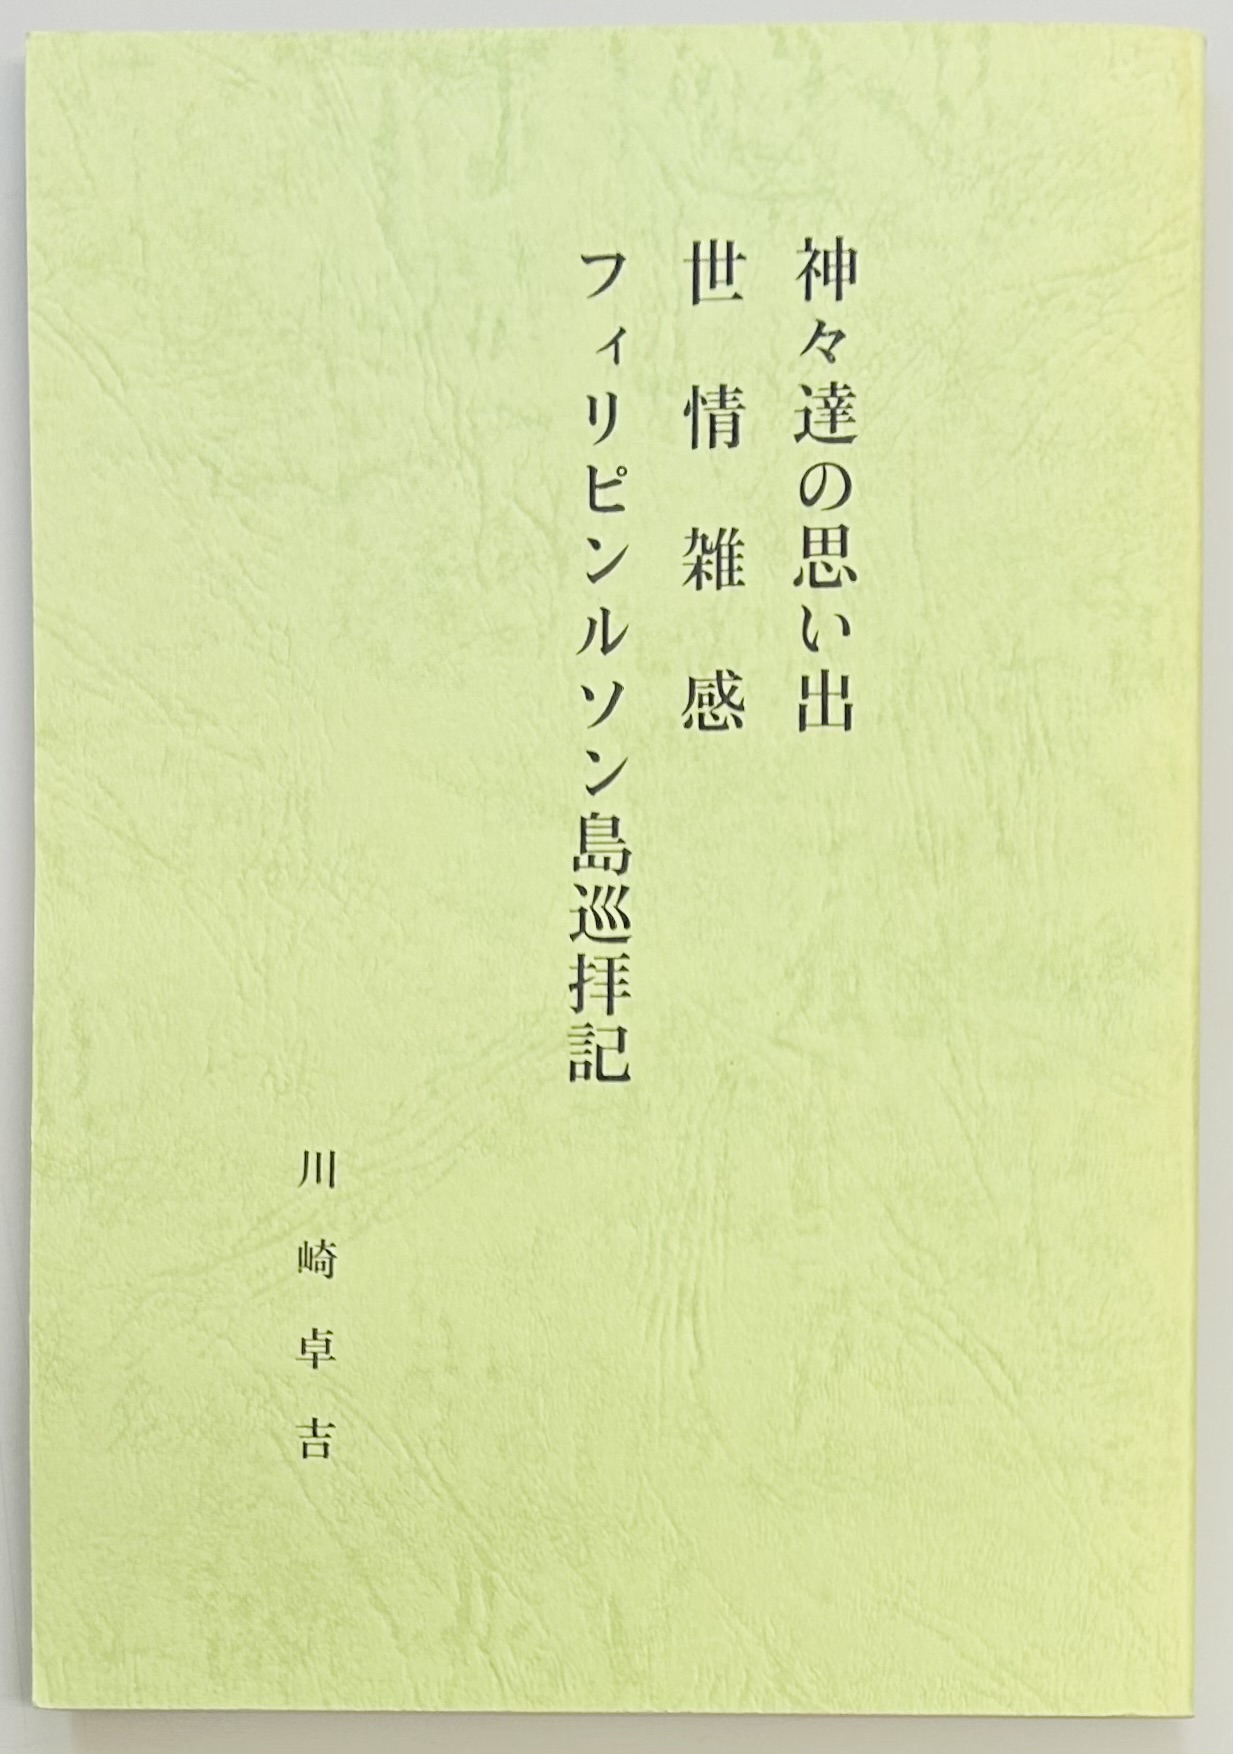 神々達の思い出
世情雑感
フィリピンルソン島巡拝記
川崎卓吉